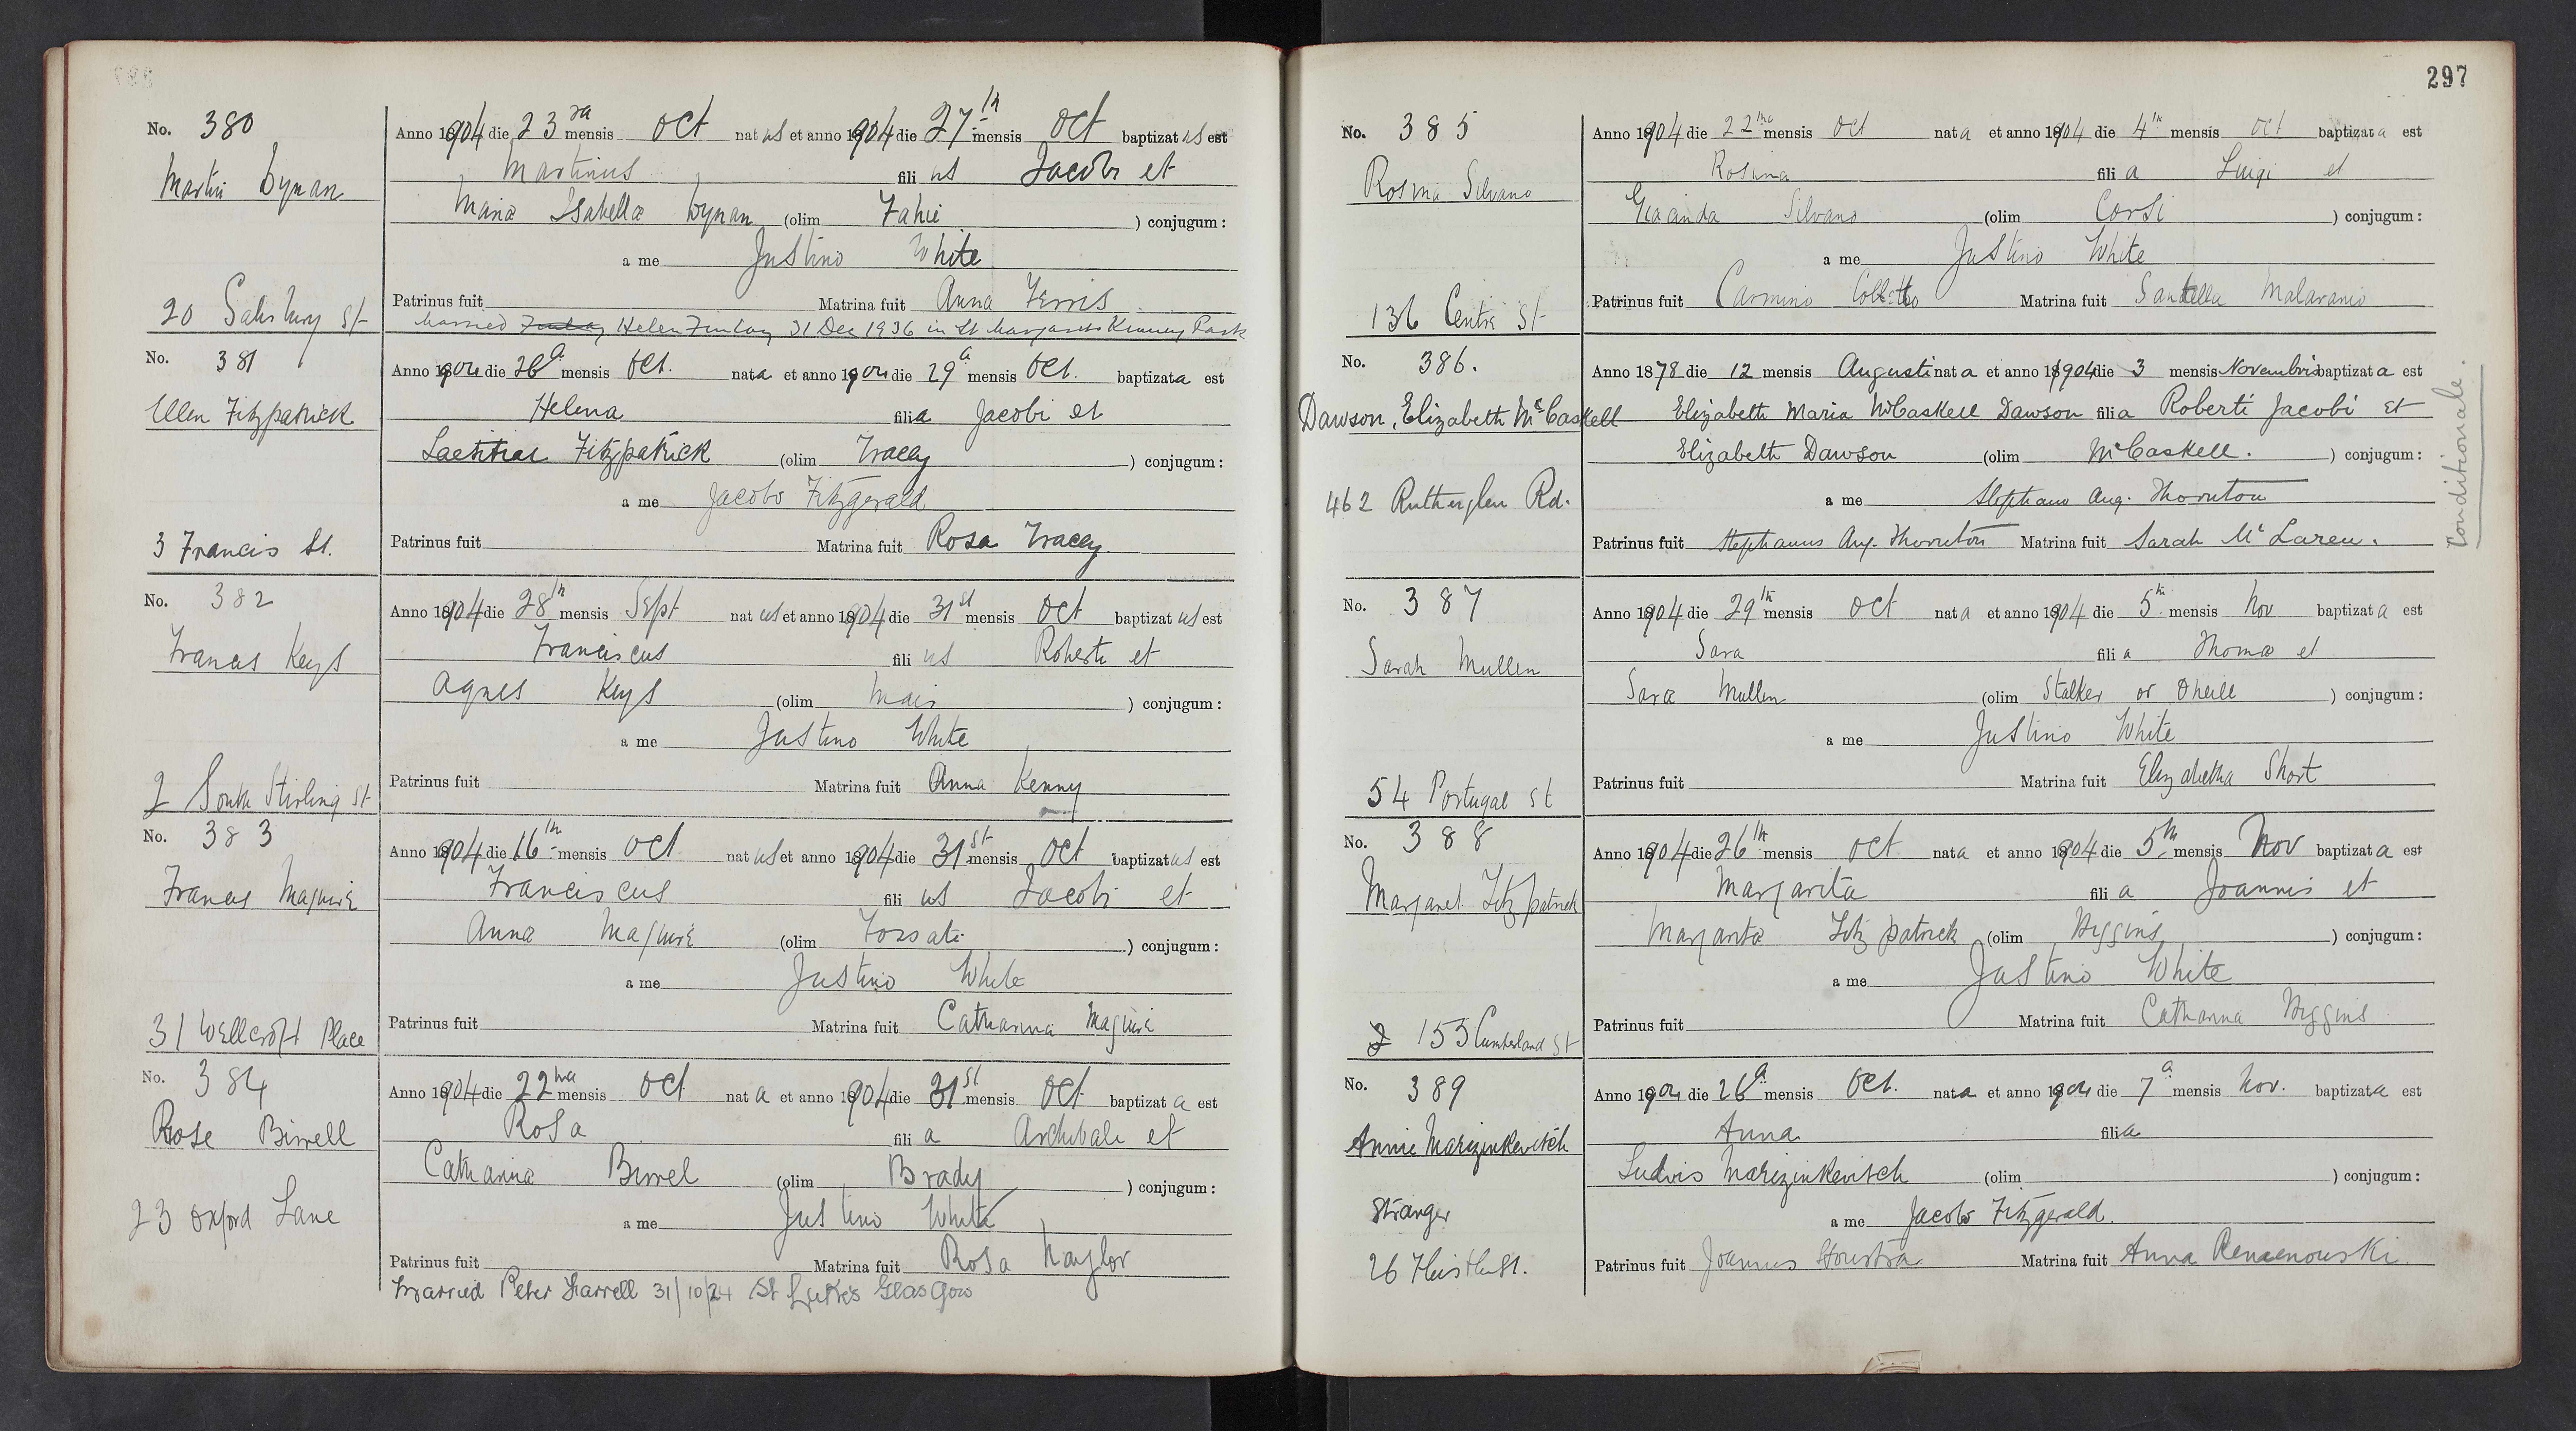 No. 380
Martin Wynan
20 Salisbury St
Anno 1904 die 23ra mensis Oct natus et anno 1904 die 27th mensis Oct baptizatus est
Martinus filius Jacobi et
Maria Isabella Wynan (olim Fahie ) conjugum:
a me Justino White
Patrinus fuit Matrina fuit Anna Ferris
Married Finlay Helen Finlay 31 Dec 1936 in St Margarets Kinning Park
No. 381
Ellen Fitzpatrick
3 Francis St.
Anno 1904 die 26a mensis Oct. nata et anno 1904 die 29a mensis Oct. baptizata est
Helena filia Jacobi et
Laetitiae Fitzpatrick (olim Tracey ) conjugum:
a me Jacobo Fitzgerald
Patrinus fuit Matrina fuit Rosa Tracey.
No. 382
Francis Keys
2 South Stirling St
Anno 1904 die 28th mensis Sept natus et anno 1904 die 31st mensis Oct baptizatus est
Franciscus filius Roberti et
Agnes Keys (olim Mair ) conjugum:
a me Justino White
Patrinus fuit Matrina fuit Anna Kenny
No. 383
Francis Maguire
31 Wellcroft Place
Anno 1904 die 16th mensis Oct natus et anno 1904 die 31st mensis Oct baptizatus est
Franciscus filius Jacobi et
Anna Maguire (olim ) conjugum:
a me Justino White
Patrinus fuit Matrina fuit Catharina Maguire
No. 384
Rose Birrell
23 Oxford Lane
Anno 1904 die 22nda mensis Oct nata et anno 1904 die 31st mensis Oct baptizata est
Rosa filia Archibali et
Catharina Birrel (olim Brady ) conjugum:
a me Justino White
Patrinus fuit Matrina fuit Rosa Naylor
Married Peter Farrell 31/10/24 St Luke's Glasgow
297
No. 385
Rosina Silvano
136 Centre St
Anno 1904 die 22nda mensis Oct nata et anno 1904 die 4th mensis Oct baptizata est
Rosina filia Luigi et
Silvano (olim Corsi ) conjugum:
a me Justino White
Patrinus fuit Carmino Matrina fuit Malaranio
No. 386.
Dawson, Elizabeth McCaskell
462 Rutherglen Rd.
Anno 1878 die 12 mensis Augusti nata et anno 1904 die 3 mensis Novembris baptizata est
Elizabeth Maria McCaskell Dawson filia Roberti Jacobi et
Elizabeth Dawson (olim McCaskell. ) conjugum:
a me Stephano Aug. Thornton
Patrinus fuit Stephanus Aug. Thornton Matrina fuit Sarah McLaren.
Conditionale.
No. 387
Sarah Mullen
54 Portugal St
Anno 1904 die 29th mensis Oct nata et anno 1904 die 5th mensis Nov baptizata est
Sara filia Thomae et
Sara Mullen (olim Stalker or Oneill ) conjugum:
a me Justino White
Patrinus fuit Matrina fuit Elizabetha Short
No. 388
Margaret Fitzpatrick
155 Cumberland St
Anno 1904 die 26th mensis Oct nata et anno 1904 die 5th mensis Nov baptizata est
Margarita filia Joannis et
Margarita Fitzpatrick (olim Higgins ) conjugum:
a me Justino White
Patrinus fuit Matrina fuit Catharina Higgins
No. 389
Annie Marizinkevitch
Stranger
26 Thistle St.
Anno 1904 die 26a mensis Oct. nata et anno 1904 die 7a mensis Nov. baptizata est
Anna filia
Ludvis Marizinkevitch (olim ) conjugum:
a me Jacobo Fitzgerald.
Patrinus fuit Joannus Matrina fuit Anna